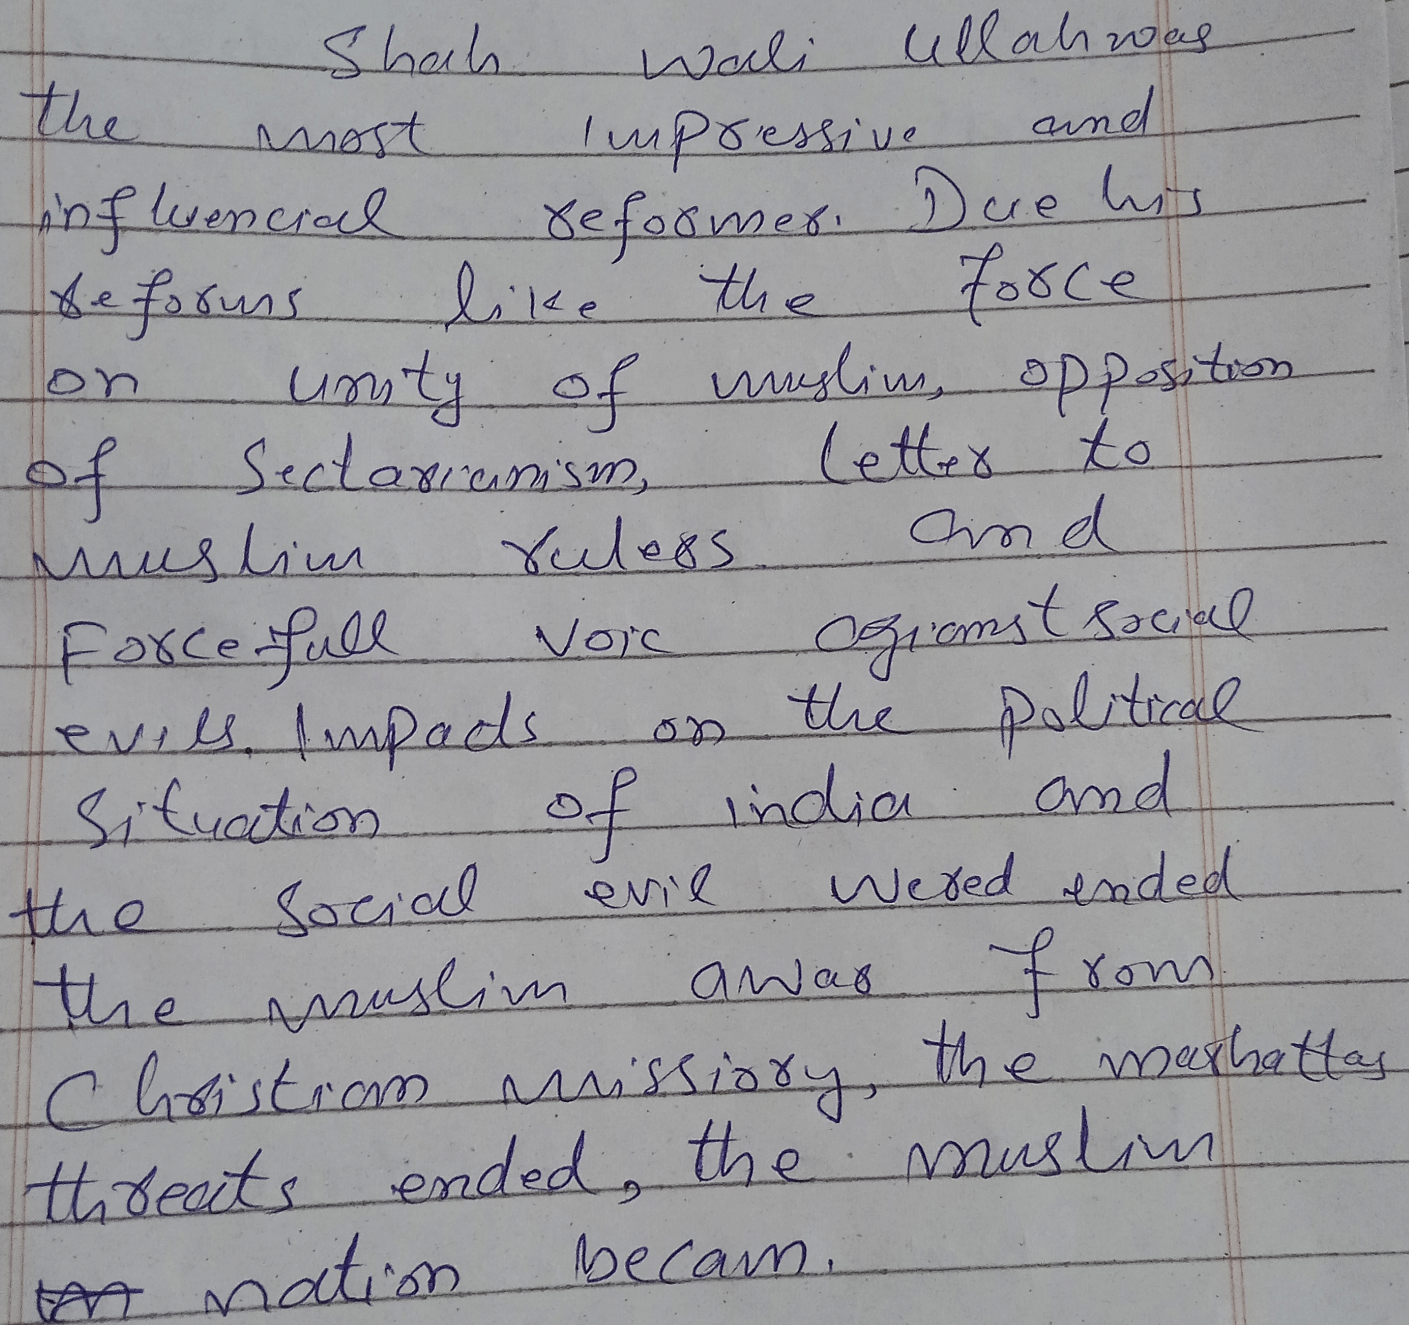 Shah Wali Ullah was
the most Impressive and
influencial reformer. Due his
reforms like the force
on unity of muslim, opposition
of Sectarianism, letter to
muslim rulers and
Forcefull voic agianst social
evils. Impacts on the political
Situation of india and
the social evil wered ended
the muslim awar from
Christian missiory, the marhattas
threats ended, the muslim
nation becam.